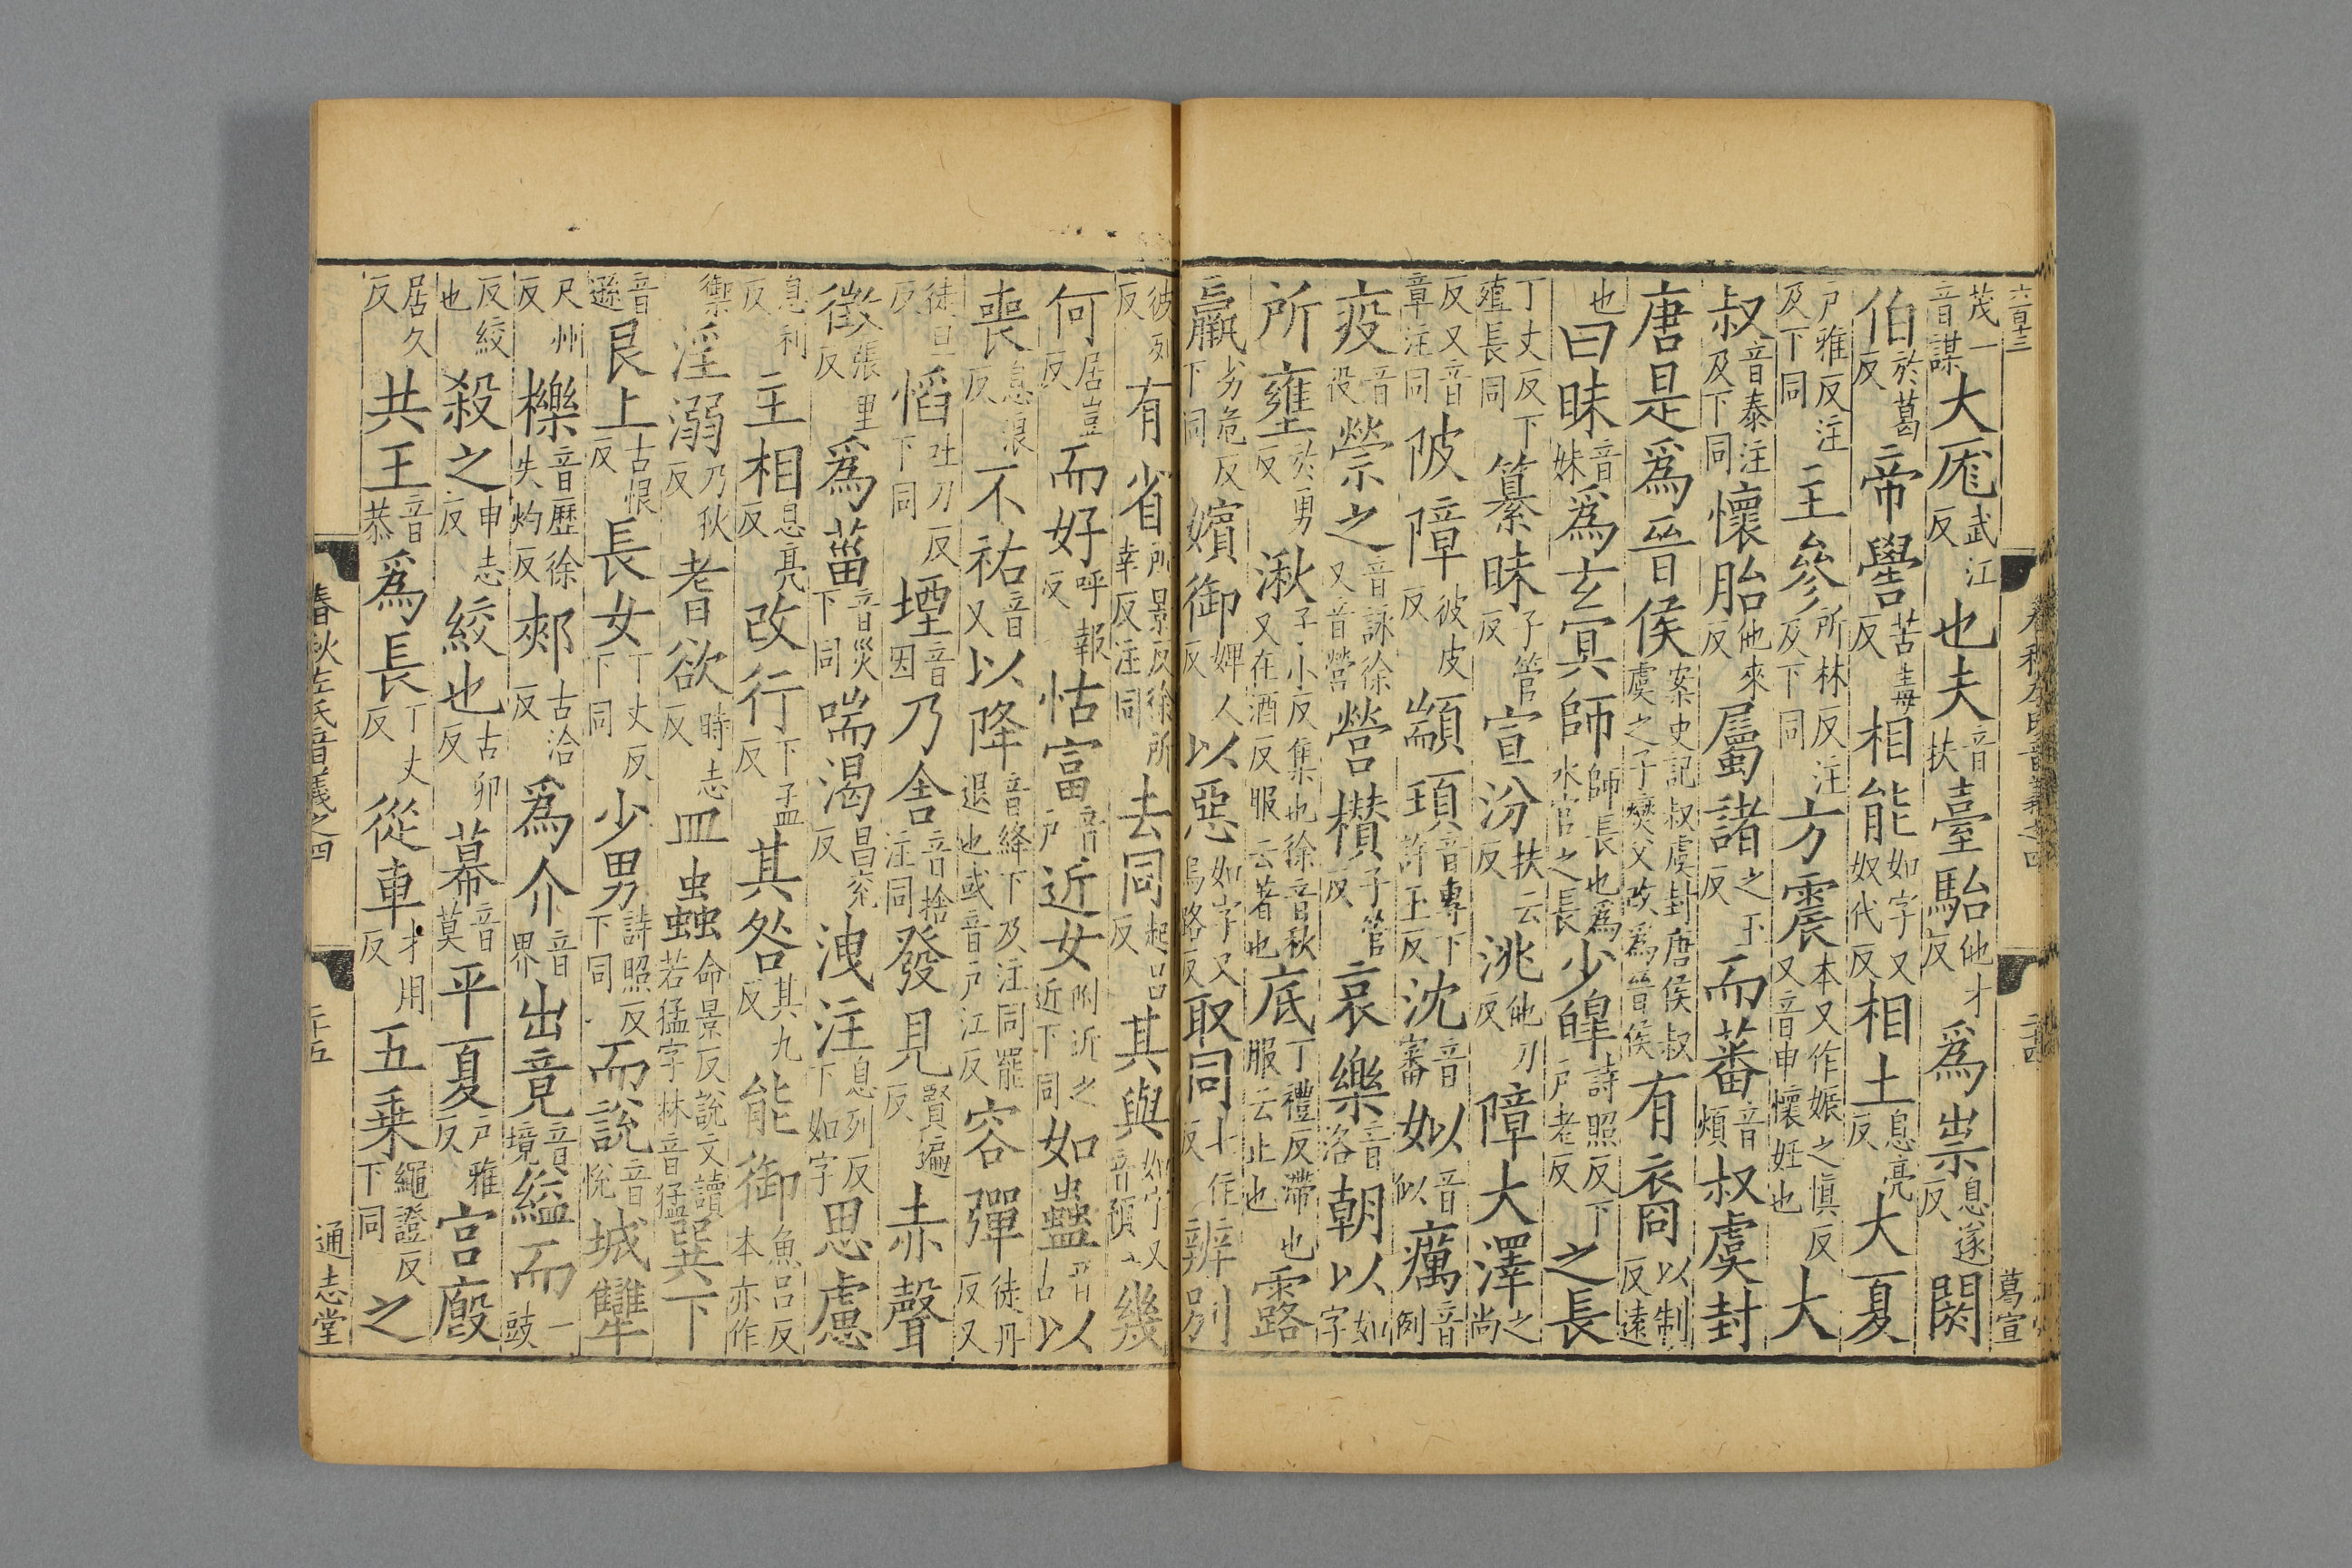 六百十三
葛宣
茂一音謀大厖武江反也夫音扶臺駘他才反爲祟息遂反閼
伯於葛反帝嚳苦毒反相能如字又奴代反相土息亮反大夏
戶雅反注及下同主參所林反注及下同方震本又作娠之愼反又音申懷妊也大
叔音泰注及下同懷胎他來反屬諸之玉反而蕃音煩叔虞封
唐是爲晉侯案史記叔虞封唐侯叔虞之子燮父改爲晉侯有裔以制反遠
也曰昧音妹爲玄冥師師長也爲水官之長少皥詩照反下戶老反之長
丁丈反下殖長同纂昧子管反宣汾扶云反洮他刀反障大澤之尚
反又音章注同陂障彼皮反顓頊音專下許玉反沈音審姒音似癘音例
疫音役禜之音詠徐又音營營欑子管反哀樂音洛朝以如字
所壅於勇反湫子小反集也徐音秋又在酒反服云著也底丁禮反滯也服云止也露
羸劣危反下同嬪御婢人反以惡如字又烏路反取同七住反辨別
彼列反有省所景反徐所幸反注同去同起呂反其與如字又音預幾
何居豈反而好呼報反怙富音戶近女附近之近下同如蠱音古以
喪息浪反不祐音又以降音絳下及注同罷退也或音戶江反容彈徒丹反又
徒旦反慆吐刀反下同堙音因乃舍音捨注同發見賢遍反赤聲
徵張里反爲菑音災下同喘渴昌兖反洩注息列反下如字思慮
息利反主相息亮反改行下孟反其咎其九反能御魚呂反本亦作
禦淫溺乃狄反耆欲時志反皿蟲命景反說文讀若猛字林音猛巽下
音遜艮上古恨反長女丁丈反下同少男詩照反下同而說音悅城犫
尺州反櫟音歷徐失灼反郟古洽反爲介音界出竟音境縊而一豉
反絞也殺之申志反絞也古卯反幕音莫平夏戶雅反宮廏
居久反共王音恭爲長丁丈反從車才用反五乘繩證反下同之
春秋左氏音義之四
二十五
通志堂